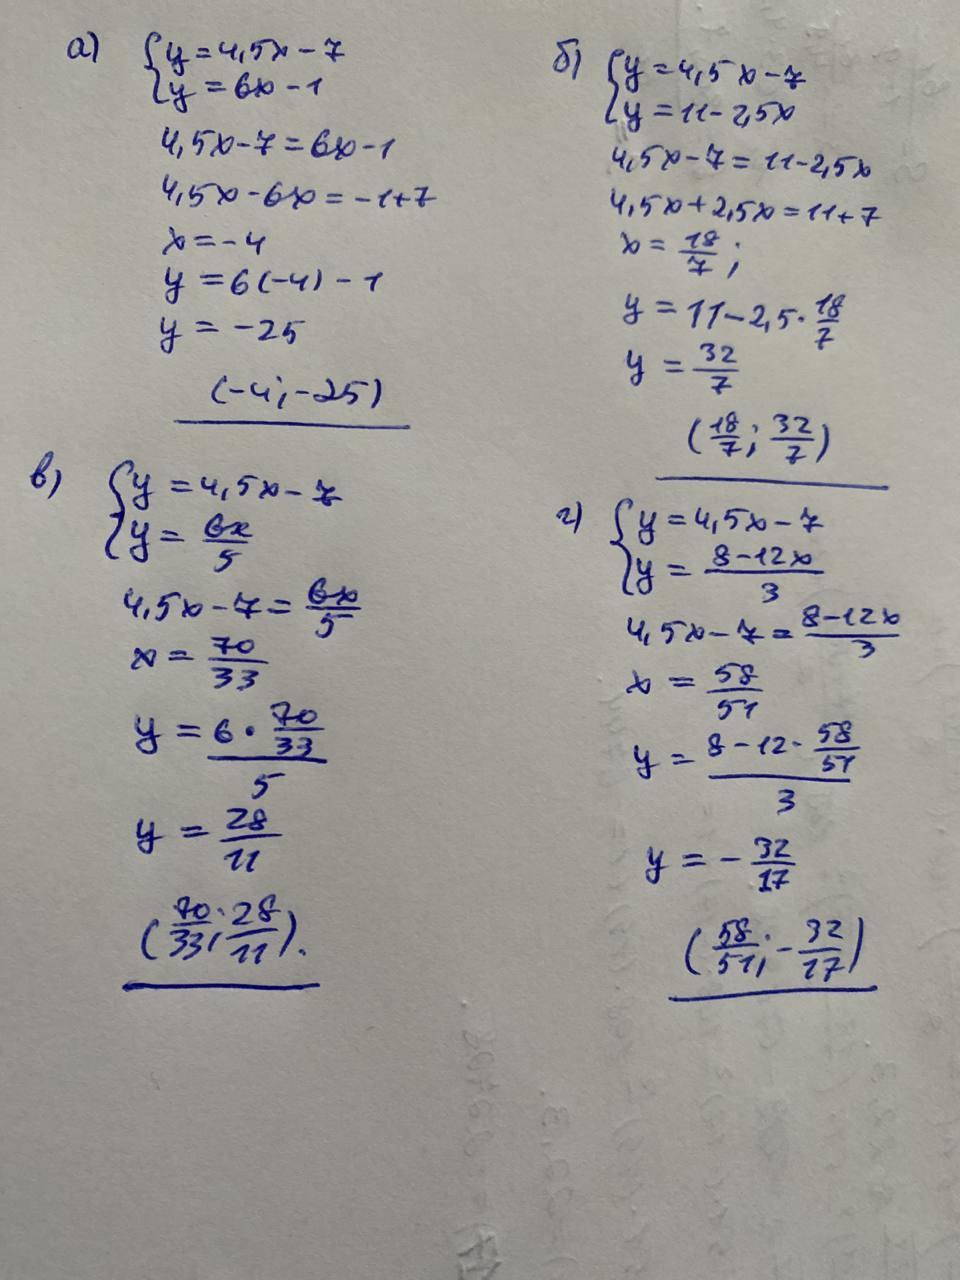 а) { y = 4,5x - 7
y = 6x - 1
4,5x - 7 = 6x - 1
4,5x - 6x = -1 + 7
x = -4
y = 6(-4) - 1
y = -25
(-4; -25)
б) { y = 4,5x - 7
y = 11 - 2,5x
4,5x - 7 = 11 - 2,5x
4,5x + 2,5x = 11 + 7
x = 18/7;
y = 11 - 2,5 · 18/7
y = 32/7
(18/7; 32/7)
в) { y = 4,5x - 7
y = 6x/5
4,5x - 7 = 6x/5
x = 70/33
y = (6 · 70/33)/5
y = 28/11
(70/33; 28/11).
г) { y = 4,5x - 7
y = (8 - 12x)/3
4,5x - 7 = (8 - 12x)/3
x = 58/51
y = (8 - 12 · 58/51)/3
y = - 32/17
(58/51; - 32/17)